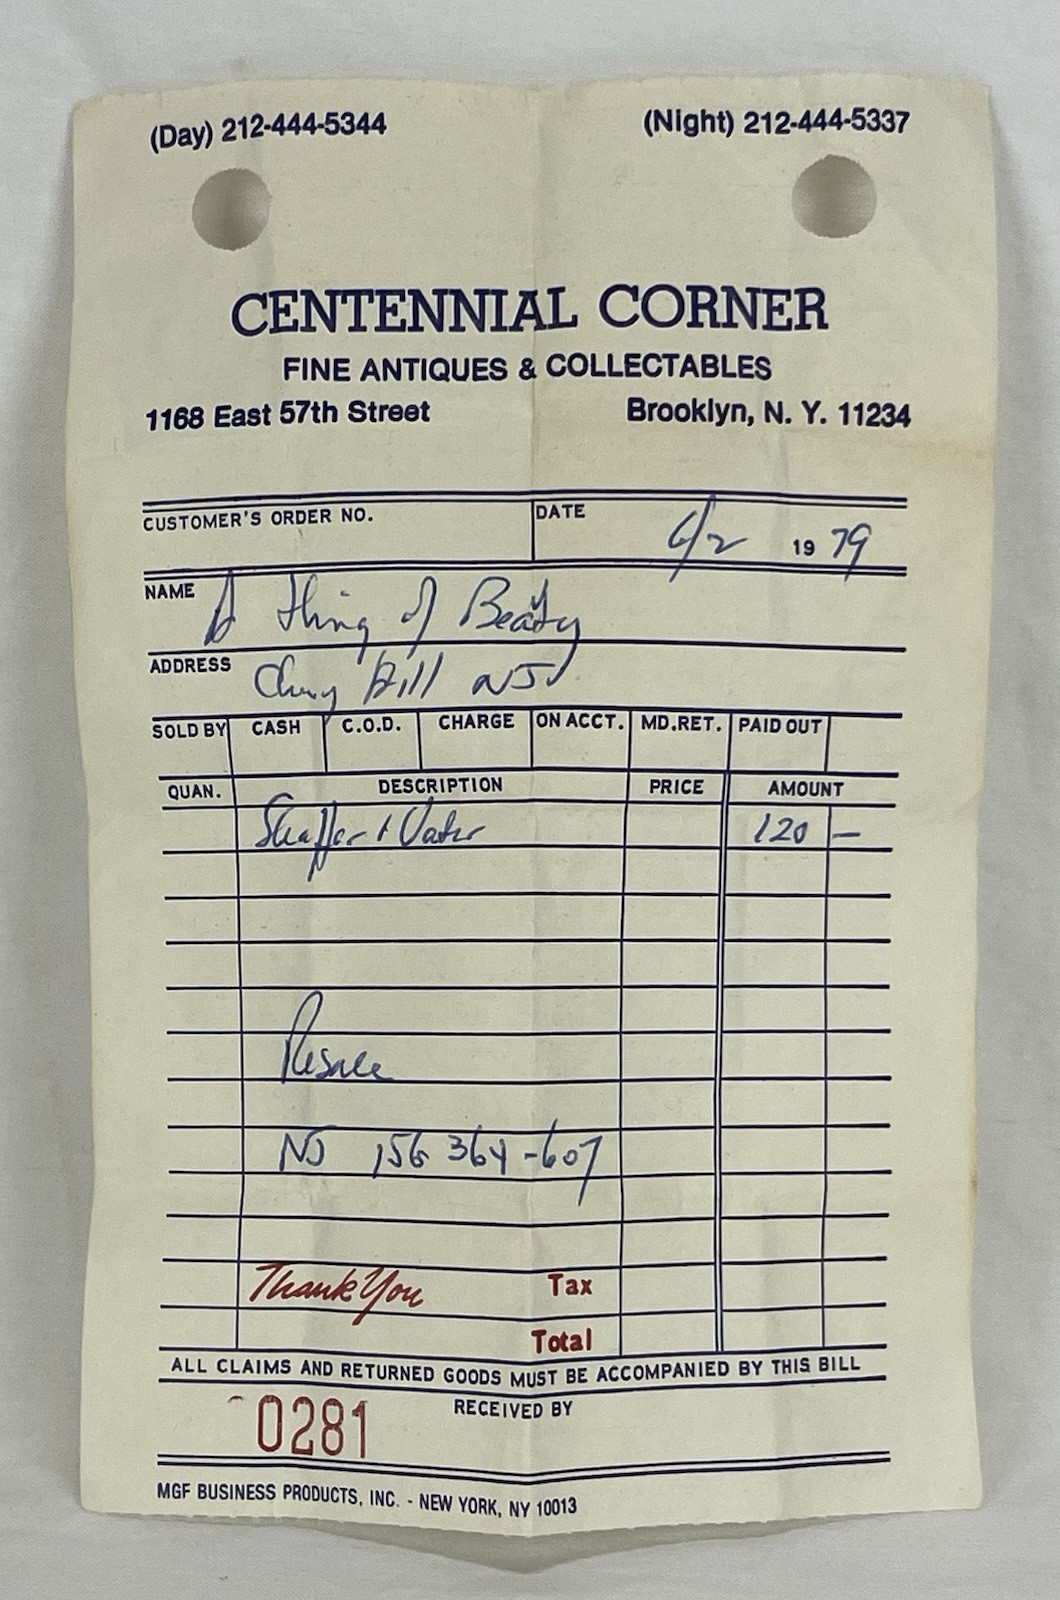 (Day) 212-444-5344 (Night) 212-444-5337
CENTENNIAL CORNER
FINE ANTIQUES & COLLECTABLES
1168 East 57th Street Brooklyn, N. Y. 11234
CUSTOMER'S ORDER NO. DATE 6/2 1979
NAME A Thing of Beauty
ADDRESS Cherry Hill NJ
SOLD BY CASH C.O.D. CHARGE ON ACCT. MD.RET. PAID OUT
QUAN. DESCRIPTION PRICE AMOUNT
Shaffer & Vater 120 —
Resale
NJ 156 364-607
Thank You Tax
Total
ALL CLAIMS AND RETURNED GOODS MUST BE ACCOMPANIED BY THIS BILL
0281 RECEIVED BY
MGF BUSINESS PRODUCTS, INC. - NEW YORK, NY 10013